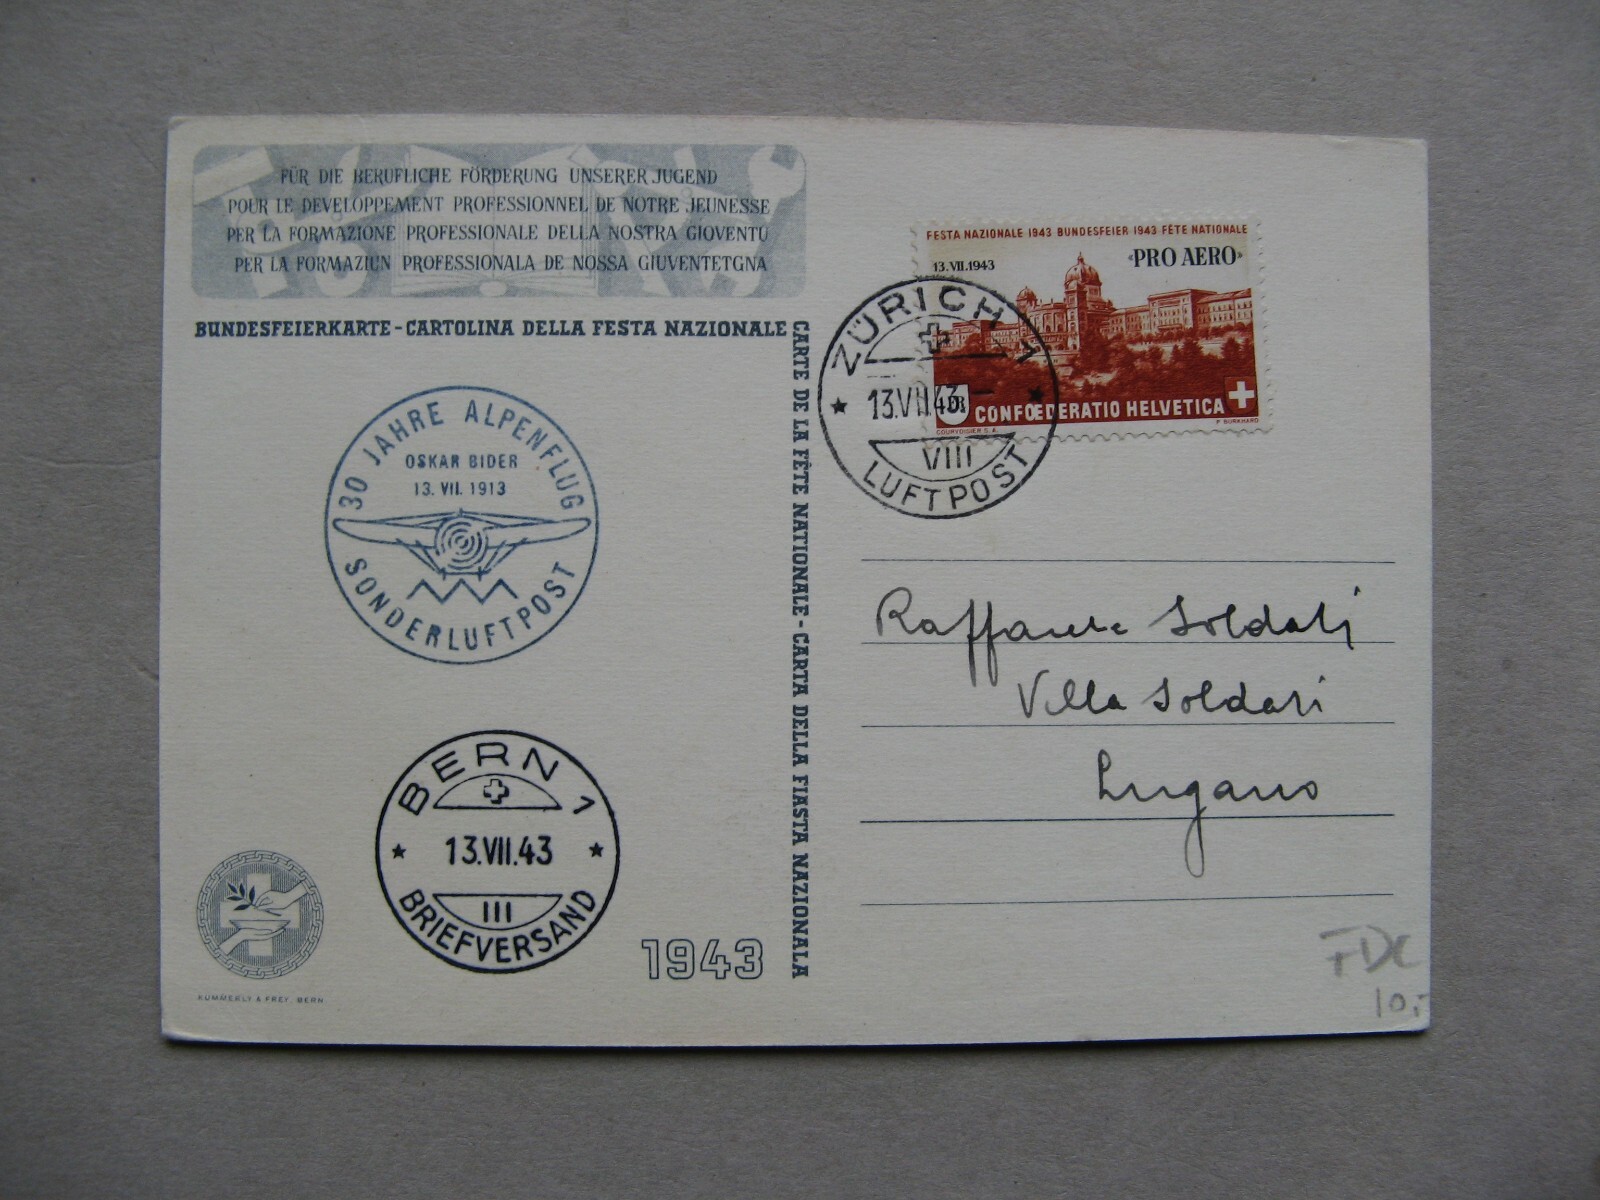 FÜR DIE BERUFLICHE FÖRDERUNG UNSERER JUGEND
POUR LE DEVELOPPEMENT PROFESSIONNEL DE NOTRE JEUNESSE
PER LA FORMAZIONE PROFESSIONALE DELLA NOSTRA GIOVENTÙ
PER LA FORMAZIUN PROFESSIONALA DE NOSSA GIUVENTETGNA
BUNDESFEIERKARTE - CARTOLINA DELLA FESTA NAZIONALE
CARTE DE LA FÊTE NATIONALE - CARTA DELLA FIASTA NAZIONALA
30 JAHRE ALPENFLUG
OSKAR BIDER
13. VII. 1913
SONDERLUFTPOST
BERN 1
13.VII.43
III
BRIEFVERSAND
1943
KÜMMERLY & FREY, BERN
FESTA NAZIONALE 1943 BUNDESFEIER 1943 FÊTE NATIONALE
13.VII.1943
«PRO AERO»
CONFŒDERATIO HELVETICA
COURVOISIER S.A.
P BURKHARD
ZÜRICH 1
13.VII.43-
VIII
LUFTPOST
Raffaele Soldati
Villa Soldati
Lugano
FDC
10.-